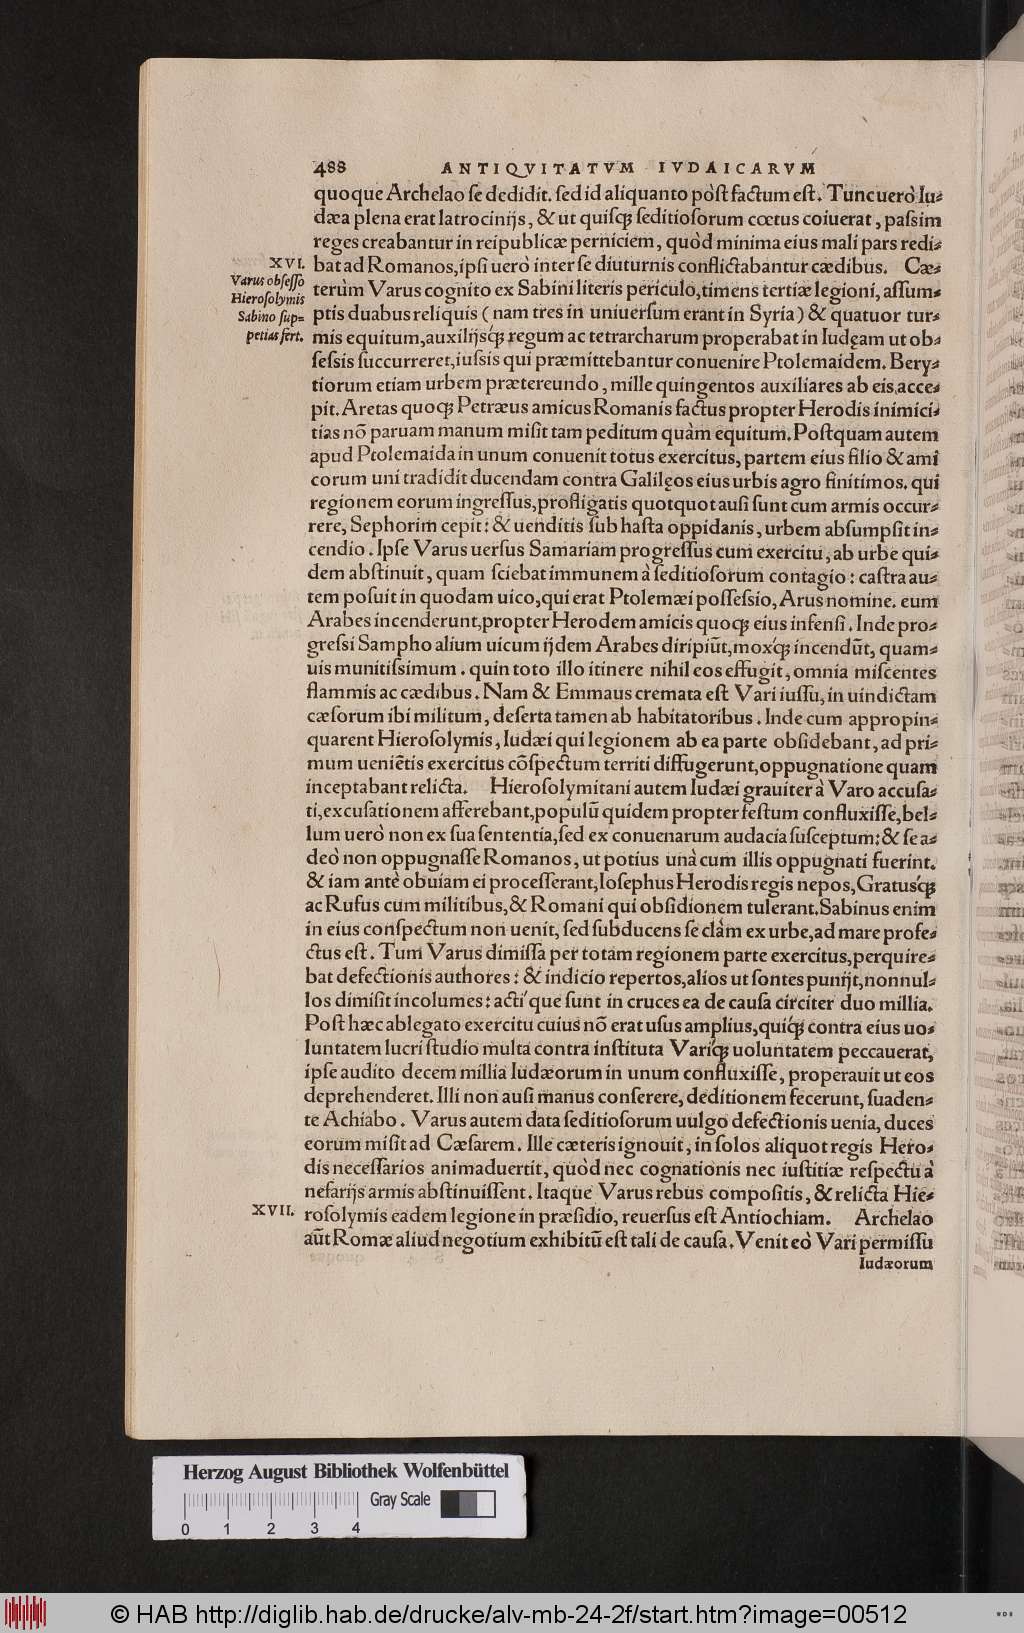 488 ANTIQVITATVM IVDAICARVM
quoque Archelao ſe dedidit. ſed id aliquanto pòſt factum eſt. Tunc uerò Iu-
dæa plena erat latrocinijs, & ut quiſq; ſeditioſorum cœtus coiuerat, paſsim
reges creabantur in reipublicæ perniciem, quòd minima eius mali pars redi-
XVI.
bat ad Romanos, ipſi uerò inter ſe diuturnis conflictabantur cædibus. Cæ-
Varus obſeſſo
Hieroſolymis
Sabino ſup-
petias fert.
terùm Varus cognito ex Sabini literis periculo, timens tertiæ legioni, aſſum-
ptis duabus reliquis (nam tres in uniuerſum erant in Syria) & quatuor tur-
mis equitum, auxilijsq́; regum ac tetrarcharum properabat in Iudęam ut ob-
ſeſsis ſuccurreret, iuſsis qui præmittebantur conuenire Ptolemaidem. Bery-
tiorum etiam urbem prætereundo, mille quingentos auxiliares ab eis acce-
pit. Aretas quoq; Petræus amicus Romanis factus propter Herodis inimici-
tias nõ paruam manum miſit tam peditum quàm equitum. Poſtquam autem
apud Ptolemaida in unum conuenit totus exercitus, partem eius filio & ami
corum uni tradidit ducendam contra Galilęos eius urbis agro finitimos. qui
regionem eorum ingreſſus, profligatis quotquot auſi ſunt cum armis occur-
rere, Sephorim cepit: & uenditis ſub haſta oppidanis, urbem abſumpſit in-
cendio. Ipſe Varus uerſus Samariam progreſſus cum exercitu, ab urbe qui-
dem abſtinuit, quam ſciebat immunem à ſeditioſorum contagio: caſtra au-
tem poſuit in quodam uico, qui erat Ptolemæi poſſeſsio, Arus nomine. eum
Arabes incenderunt, propter Herodem amicis quoq; eius infenſi. Inde pro-
greſsi Sampho alium uicum ijdem Arabes diripiũt, moxq́; incendũt, quam-
uis munitiſsimum. quin toto illo itinere nihil eos effugit, omnia miſcentes
flammis ac cædibus. Nam & Emmaus cremata eſt Vari iuſſu, in uindictam
cæſorum ibi militum, deſerta tamen ab habitatoribus. Inde cum appropin-
quarent Hieroſolymis, Iudæi qui legionem ab ea parte obſidebant, ad pri-
mum ueniẽtis exercitus cõſpectum territi diffugerunt, oppugnatione quam
inceptabant relicta. Hieroſolymitani autem Iudæi grauiter à Varo accuſa-
ti, excuſationem afferebant, populũ quidem propter feſtum confluxiſſe, bel-
lum uerò non ex ſua ſententia, ſed ex conuenarum audacia ſuſceptum: & ſe a-
deò non oppugnaſſe Romanos, ut potius unà cum illis oppugnati fuerint.
& iam antè obuiam ei proceſſerant, Ioſephus Herodis regis nepos, Gratusq́;
ac Rufus cum militibus, & Romani qui obſidionem tulerant. Sabinus enim
in eius conſpectum non uenit, ſed ſubducens ſe clàm ex urbe, ad mare profe-
ctus eſt. Tum Varus dimiſſa per totam regionem parte exercitus, perquire-
bat defectionis authores: & indicio repertos, alios ut ſontes punijt, nonnul-
los dimiſit incolumes: actí que ſunt in cruces ea de cauſa circiter duo millia.
Poſt hæc ablegato exercitu cuius nõ erat uſus amplius, quiq́; contra eius uo-
luntatem lucri ſtudio multa contra inſtituta Variq́; uoluntatem peccauerat,
ipſe audito decem millia Iudæorum in unum confluxiſſe, properauit ut eos
deprehenderet. Illi non auſi manus conſerere, deditionem fecerunt, ſuaden-
te Achiabo. Varus autem data ſeditioſorum uulgo defectionis uenia, duces
eorum miſit ad Cæſarem. Ille cæteris ignouit, in ſolos aliquot regis Hero-
dis neceſſarios animaduertit, quòd nec cognationis nec iuſtitiæ reſpectu à
nefarijs armis abſtinuiſſent. Itaque Varus rebus compoſitis, & relicta Hie-
XVII.
roſolymis eadem legione in præſidio, reuerſus eſt Antiochiam. Archelao
aũt Romæ aliud negotium exhibitũ eſt tali de cauſa. Venit eò Vari permiſſu
Iudæorum
Herzog August Bibliothek Wolfenbüttel
Gray Scale
0 1 2 3 4
© HAB http://diglib.hab.de/drucke/alv-mb-24-2f/start.htm?image=00512